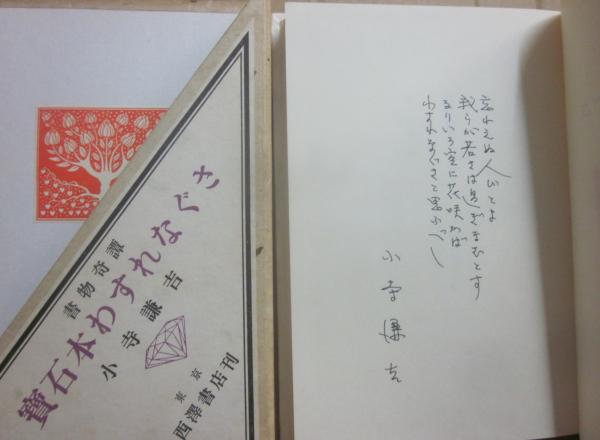 書物奇譚
寶石本わすれなぐさ
小寺謙吉
東京
西澤書店刊
忘れえぬ人びとよ
我らが若さは過ぎなむとす
るりいろ空に花咲かば
わすれなぐさと思ふべし
小寺謙吉